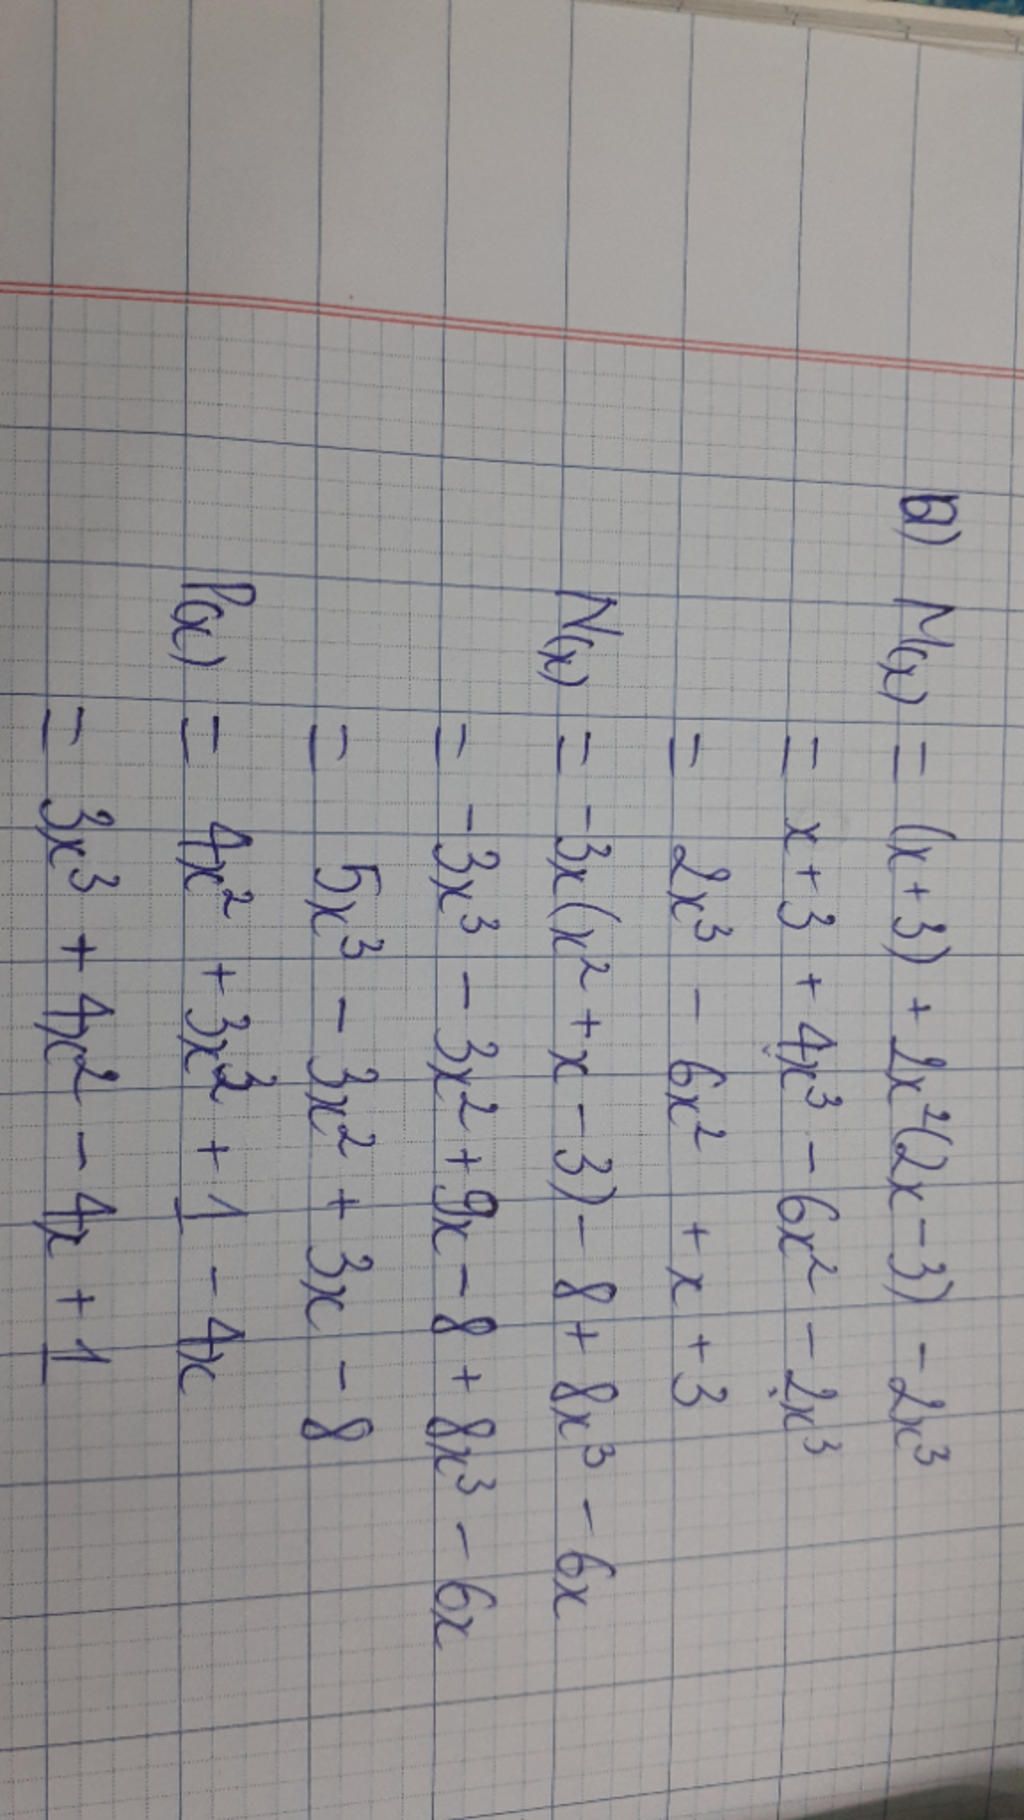 a) M(x) = (x+3) + 2x²(2x-3) - 2x³
= x+3 + 4x³ - 6x² - 2x³
= 2x³ - 6x² + x + 3
N(x) = -3x(x² + x - 3) - 8 + 8x³ - 6x
= -3x³ - 3x² + 9x - 8 + 8x³ - 6x
= 5x³ - 3x² + 3x - 8
P(x) = 4x² + 3x³ + 1 - 4x
= 3x³ + 4x² - 4x + 1